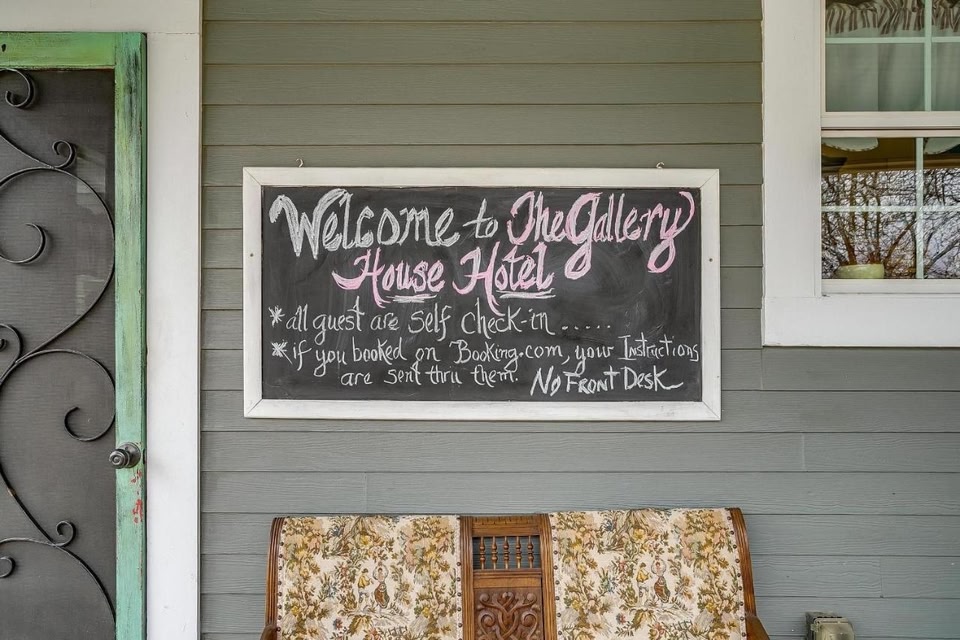 Welcome to The Gallery
House Hotel
*all guest are self check-in .....
*if you booked on Booking.com, your Instructions
are sent thru them. No Front Desk